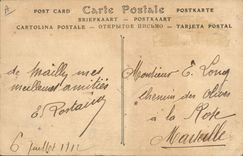 POST CARD Carte Postale POSTKARTE
BRIEFKAART — POSTKAART
CARTOLINA POSTALE — ОТКРЫТОЕ ПИСЬМО — TARJETA POSTAL
de Mailly mes
meilleures amitiés
E. Rostaing
6 Juillet 1912
Monsieur E. Long
chemin des Olives
à la Rose
Marseille